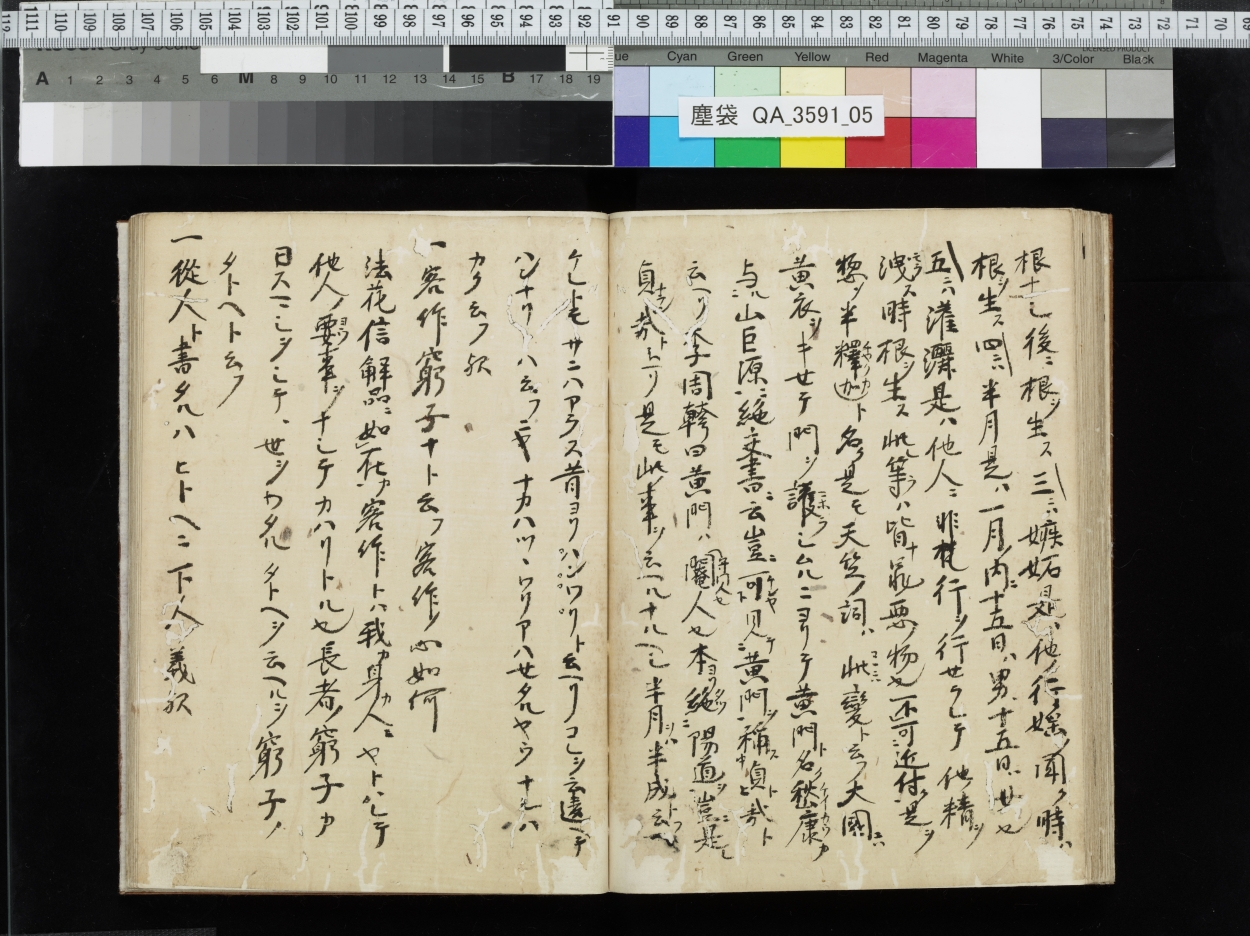 塵袋 QA_3591_05
Cyan Green Yellow Red Magenta White 3/Color Black
A 1 2 3 4 5 6 M 8 9 10 11 12 13 14 15 B 17 18 19
根ナシ後ニ根ヲ生ス三ニハ嫉妬是ハ他ノ行婬ヲ聞ク時ハ
根ヲ生ス四ニハ半月是ハ一月ノ内ニ十五日ハ男十五日ハ女也
五ニハ灌灑是ハ他人ニ非梵行ヲ行セラレテ他精ヲ
洩ス時根ヲ生ス此等ハ皆ナ罪悪ノ物也不可近付是ヲ
惣シテ半釋迦ト名ク是モ天竺ノ詞ハ此變ト云フ大國ニハ
黄衣ヲキセテ門ヲ護ラシムルニヨリテ黄門ト名ク嵆康カ
与山巨源絶交書ニ云豈可見黄門稱貞哉ト
云ヘリ李周翰曰黄門ハ閹人也本ヨリ絶陽道豈是レ
貞ナラ哉ト云ヘリ是モ此事ヲ云ヘルナルヘシ半月ヲハ半成トモ云ヘ
ケレトモサニハアラス昔ヨリハンワリト云ヘリコレヲ云違ヘテ
ハンナリトハ云フニヤナカハツヽワリアハセタルヤウナレハ
カク云フ歟
一客作窮子ナト云フ客作ノ心如何
法花信解品ニ如在客作トハ我カ身カ人ニヤトハレテ
他人ノ要事ヲナシテカハリトル也長者ノ窮子カ
日スマシヲシテ、世ヲワタルタトヘヲ云ヘルヲ窮子ノ
タトヘト云フ
一從人ト書タルハヒトヘニ下人ノ義歟